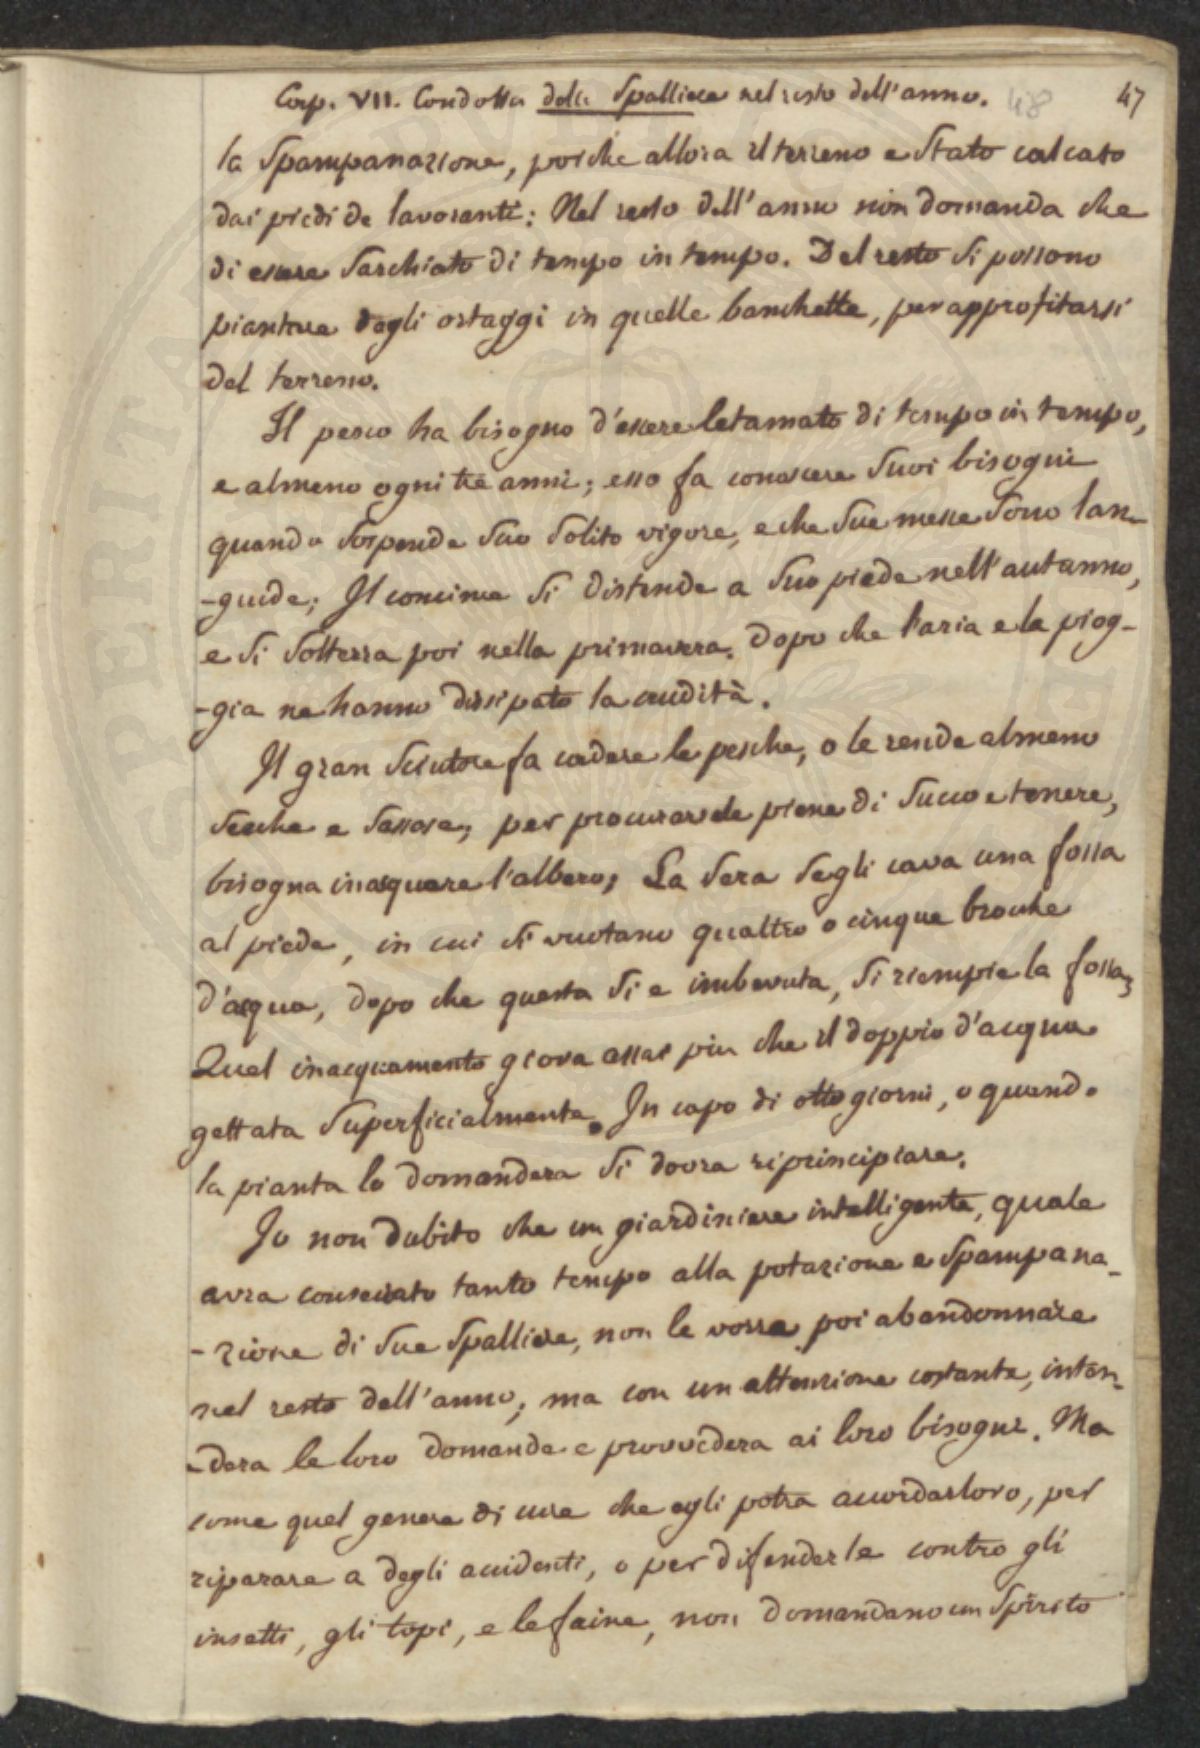 Cap. VII. Condotta delle Spalliere nel resto dell'anno. 48 47
la Spampanazione, poiche allora il terreno e Stato calcato
dai piedi de lavoranti: Nel resto dell'anno non domanda che
di essere Sarchiato di tempo in tempo. Del resto Si possono
piantare degli ortaggi in quelle banchette, per approfitarsi
del terreno.
Il pesco ha bisogno d'essere letamato di tempo in tempo,
e almeno ogni tre anni; esso fa conoscere Suoi bisogni
quando Sospende Suo Solito vigore, e che Sue messe Sono lan-
-guide; Il concime Si distende a Suo piede nell'autanno,
e Si Sotterra poi nella primavera. Dopo che l'aria e la piog-
-gia ne hanno dissipato la crudità.
Il gran Sciutore fa cadere le pesche, o le rende almeno
Secche e Sassose; per procurarsele piene di Succo e tenere,
bisogna inaquare l'albero; La Sera Segli cava una fossa
al piede, in cui Si vuotano quattro o cinque brocche
d'acqua, dopo che questa Si e imbevuta, Si riempie la fossa;
Quel inacquamento giova assai piu che il doppio d'acqua
gettata Superficialmente. In capo di otto giorni, o quando
la pianta lo domandera Si dovra riprincipiare.
Io non dubito che un giardiniere intelligente, quale
avra consecrato tanto tempo alla potazione e Spampana-
-zione di Sue Spalliere, non le vorra poi abandonnare
nel resto dell'anno; ma con un attenzione costante, inten-
-dera le loro domande e provvedera ai loro bisogni. Ma
come quel genere di cure che egli potra accordar loro, per
riparare a degli accidenti, o per difenderle contro gli
insetti, gli topi, e le faine, non domandano un Spirito